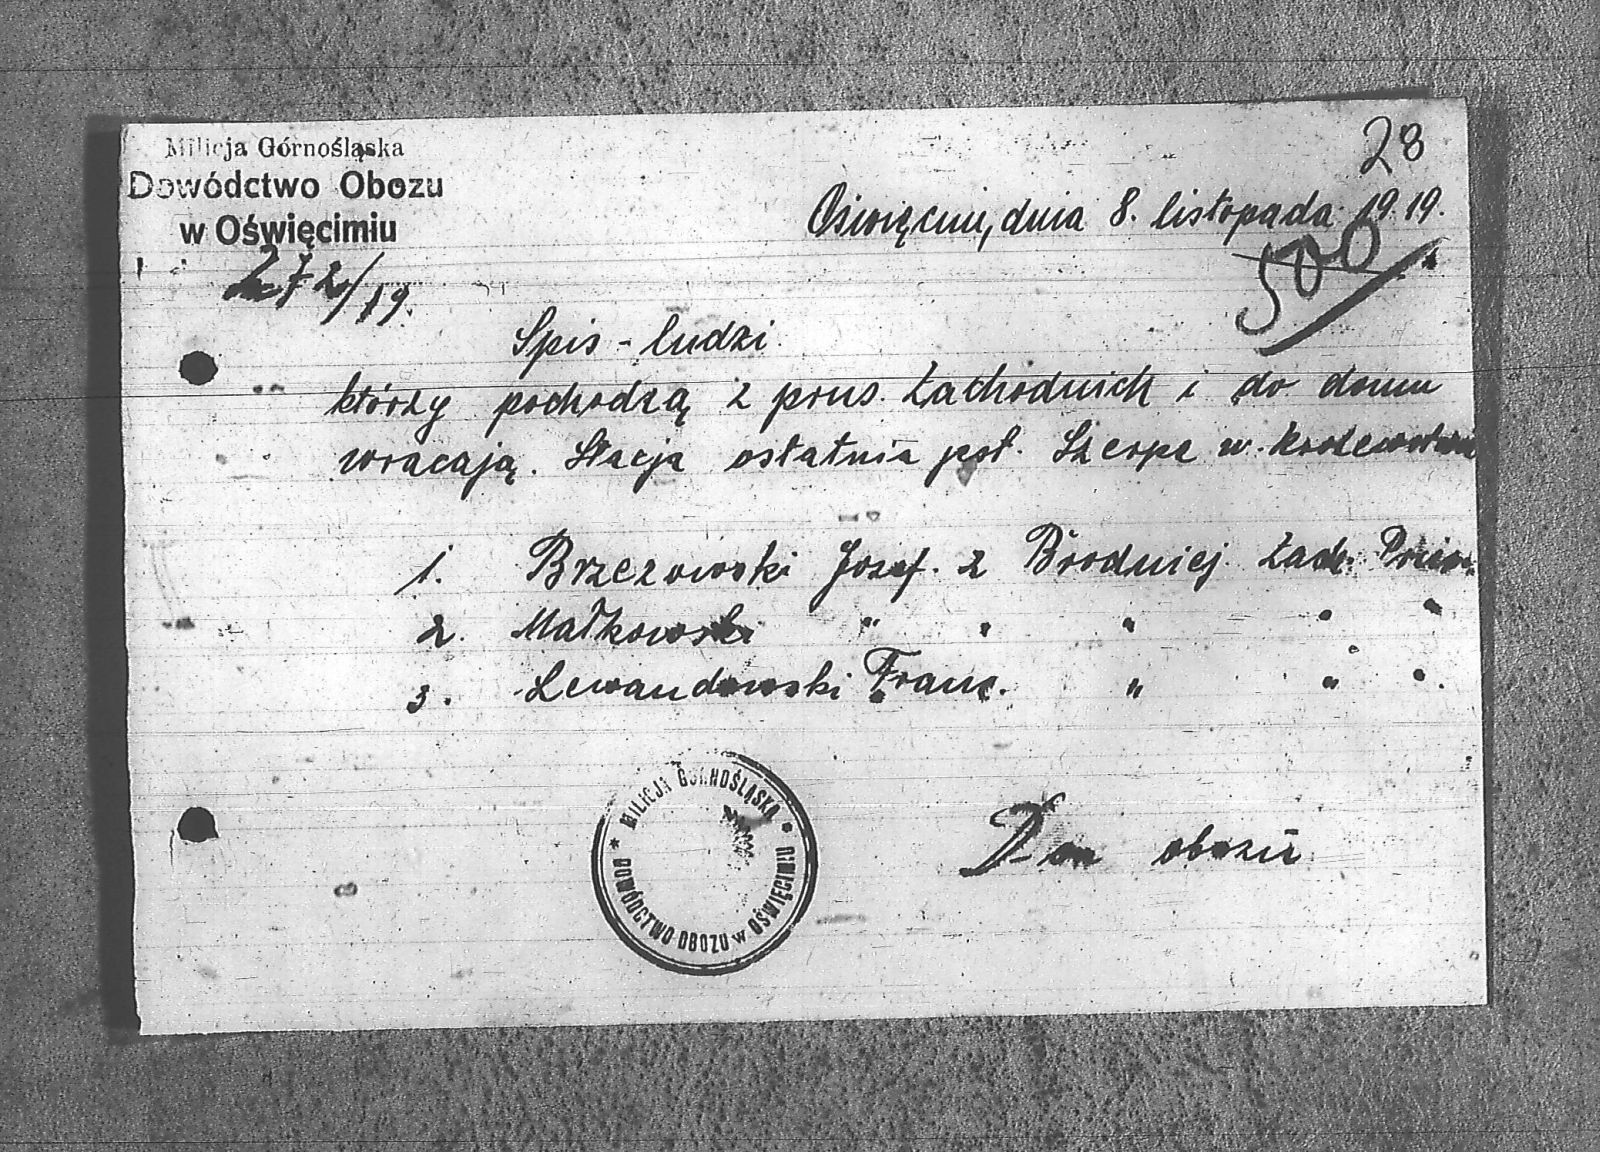 Milicja Górnośląska
Dowództwo Obozu
w Oświęcimiu
28
Oświęcim, dnia 8. listopada 1919.
272/19.
500
Spis - ludzi
którzy pochodzą z prus. Zachodnich i do domu
wracają. Stacja ostatnia pst. Szerpc w.
1. Brzezowski Jozef. z Brodniej Zach.
2. Małkowski " " " " "
3. Lewandowski Franc. " " "
MILICJA GÓRNOŚLĄSKA
* DOWÓDCTWO OBOZU w OŚWIĘCIMIU *
obozu